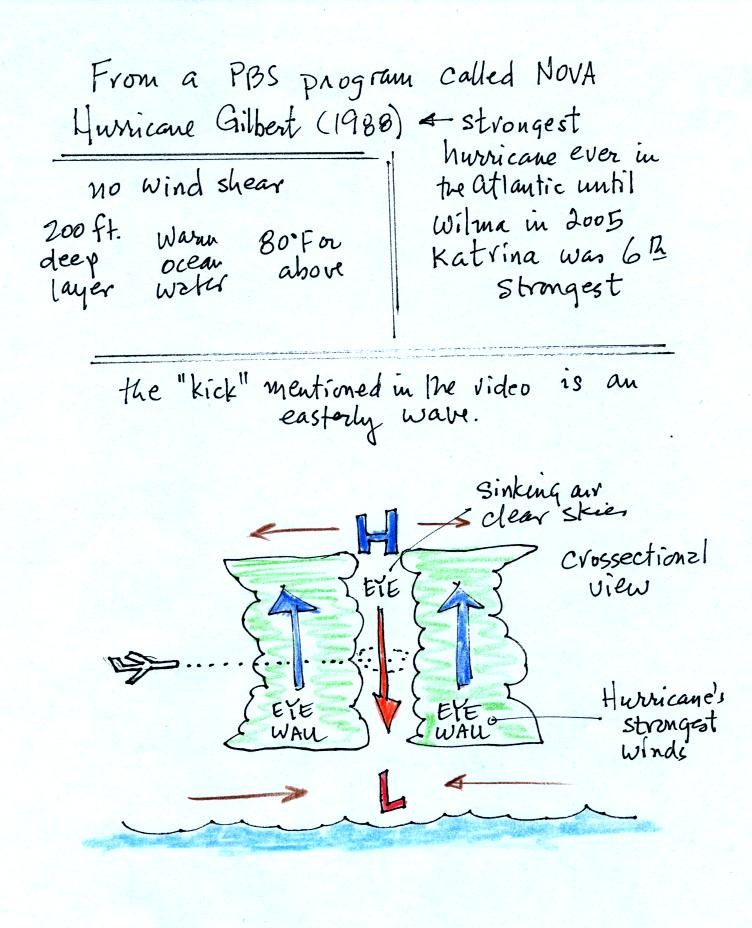 From a PBS program called NOVA
Hurricane Gilbert (1988) ← strongest
hurricane ever in
the Atlantic until
Wilma in 2005
Katrina was 6th
strongest
no wind shear
200 ft.
deep
layer
warm
ocean
water
80°F or
above
the "kick" mentioned in the video is an
easterly wave.
sinking air
clear skies
H
EYE
Crossectional
view
EYE
WALL
EYE
WALL
Hurricane's
strongest
winds
L